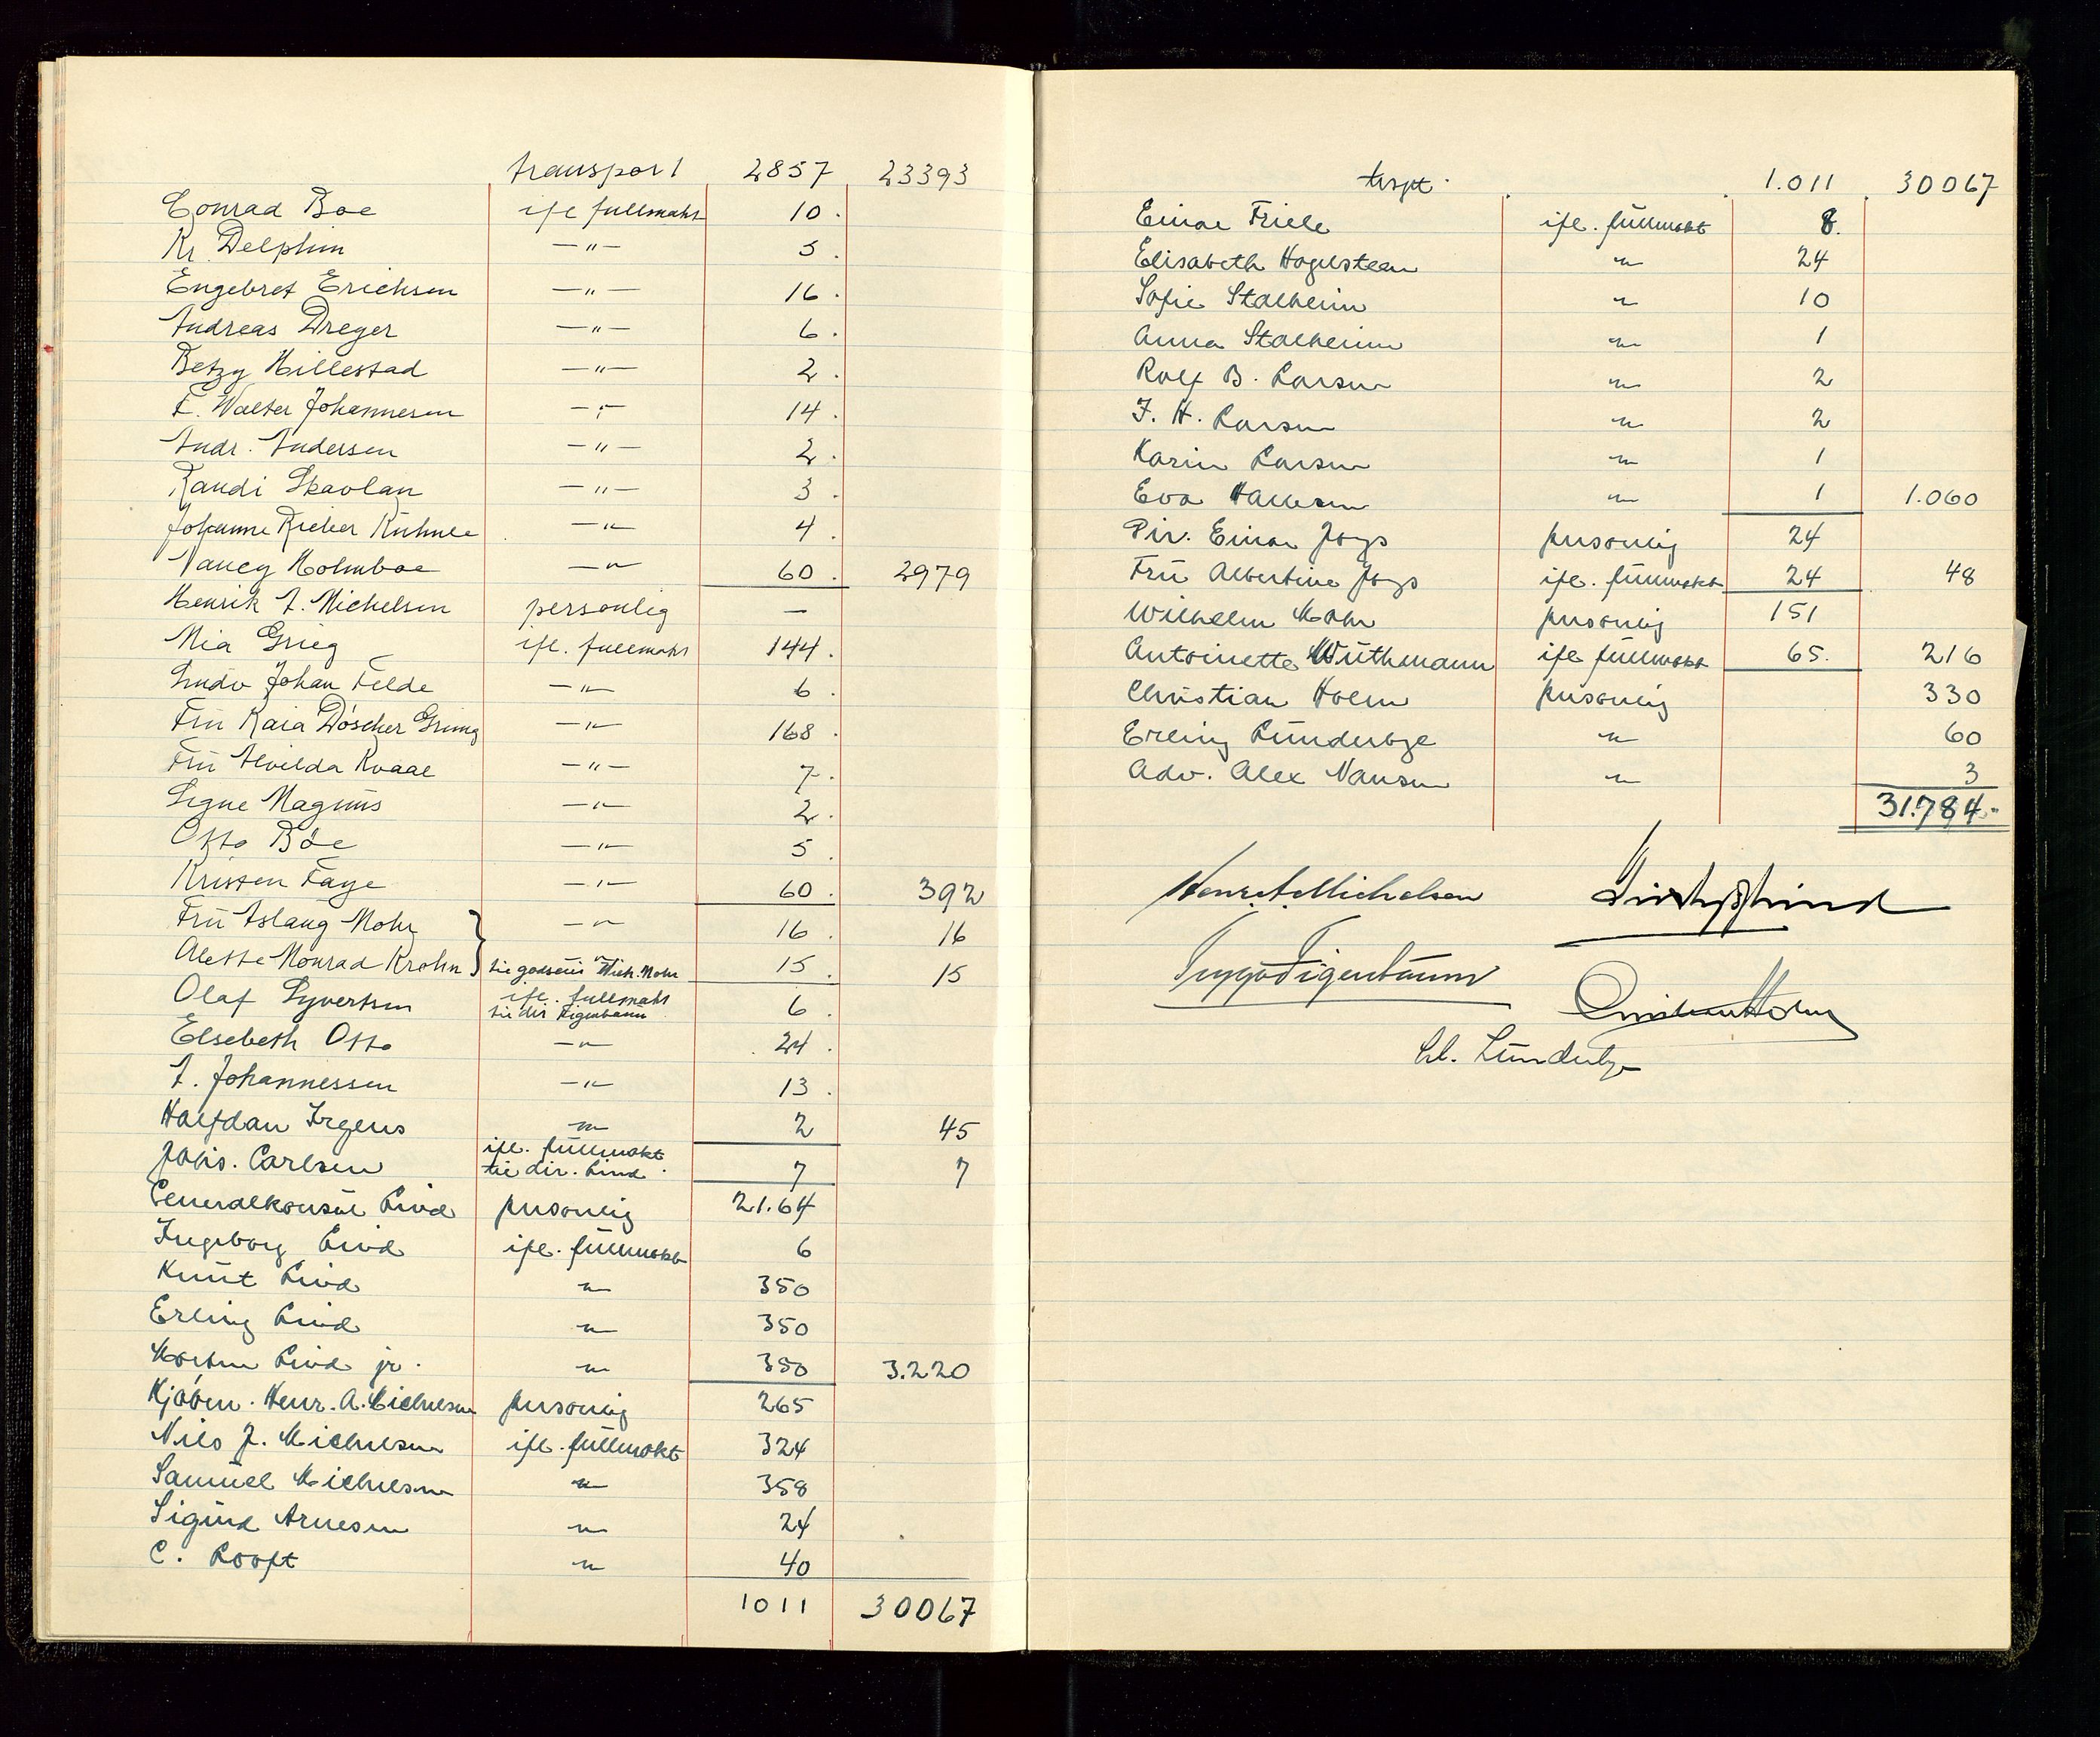 transport 2857 23393
Conrad Boe ifl fullmakt 10.
Kr. Delphin —"— 5.
Engebret Erichsen —"— 16.
Andreas Dreyer —"— 6.
Betzy Hillestad —"— 2.
F. Walter Johannesen —"— 14.
Andr. Andersen —"— 2.
Randi Skavlan —"— 3.
Johanne Rieber Kuhnle —"— 4.
Nancy Holmboe —"— 60. 2979
Henrik A. Michelsen personlig —
Mia Grieg ifl. fullmakt 144.
Ludv Johan Telde —"— 6.
Frü Kaia Döscher Grung —"— 168.
Frü Alvilda Kvaal —"— 7.
Signe Magnüs —"— 2.
Otto Böe —"— 5.
Kristen Faye —"— 60. 392
Frü Aslaug Mohr —"— 16. 16
Alette Monrad Krohn til godseier Wilh. Mohr 15. 15
Olaf Syvertsen ifl. fullmakt til dir Figenbaum 6.
Elsebeth Otto —"— 24.
A. Johannessen —"— 13.
Halfdan Irgens " 2 45
Johs. Carlsen ifl. füllmakt til dir. Lind. 7 7
Generalkonsül Lind personlig 21.64
Ingeborg Lind ifl. füllmakt 6
Knüt Lind " 350
Erling Lind " 350
Morten Lind jr. " 350 3.220
Kjøbm. Henr. A. Michelsen personlig 265
Nils J. Michelsen ifl. füllmakt 324
Samüel Michelsen " 358
Sigürd Arnesen " 24
C. Looft " 40
1011 30067
trspt. 1.011 30067
Einar Friele ifl. füllmakt 8.
Elisabeth Hagelsteen " 24
Sofie Stalheim " 10
Anna Stalheim " 1
Rolf B. Larsen " 2
F. H. Larsen " 2
Karin Larsen " 1
Eva Halversen " 1 1.060
Dir. Einar Joys personlig 24
Frü Albertine Joys ifl. füllmakt 24 48
Wilhelm Mohr personlig 151
Antoinette Wüthmann ifl füllmakt 65. 216
Christian Holm personlig 330
Erling Lünderbye " 60
Adv. Alex Nansen " 3
31.784.-
Henr. A. Michelsen
Figenbaum
Christian Holm
Erl. Lünderbye